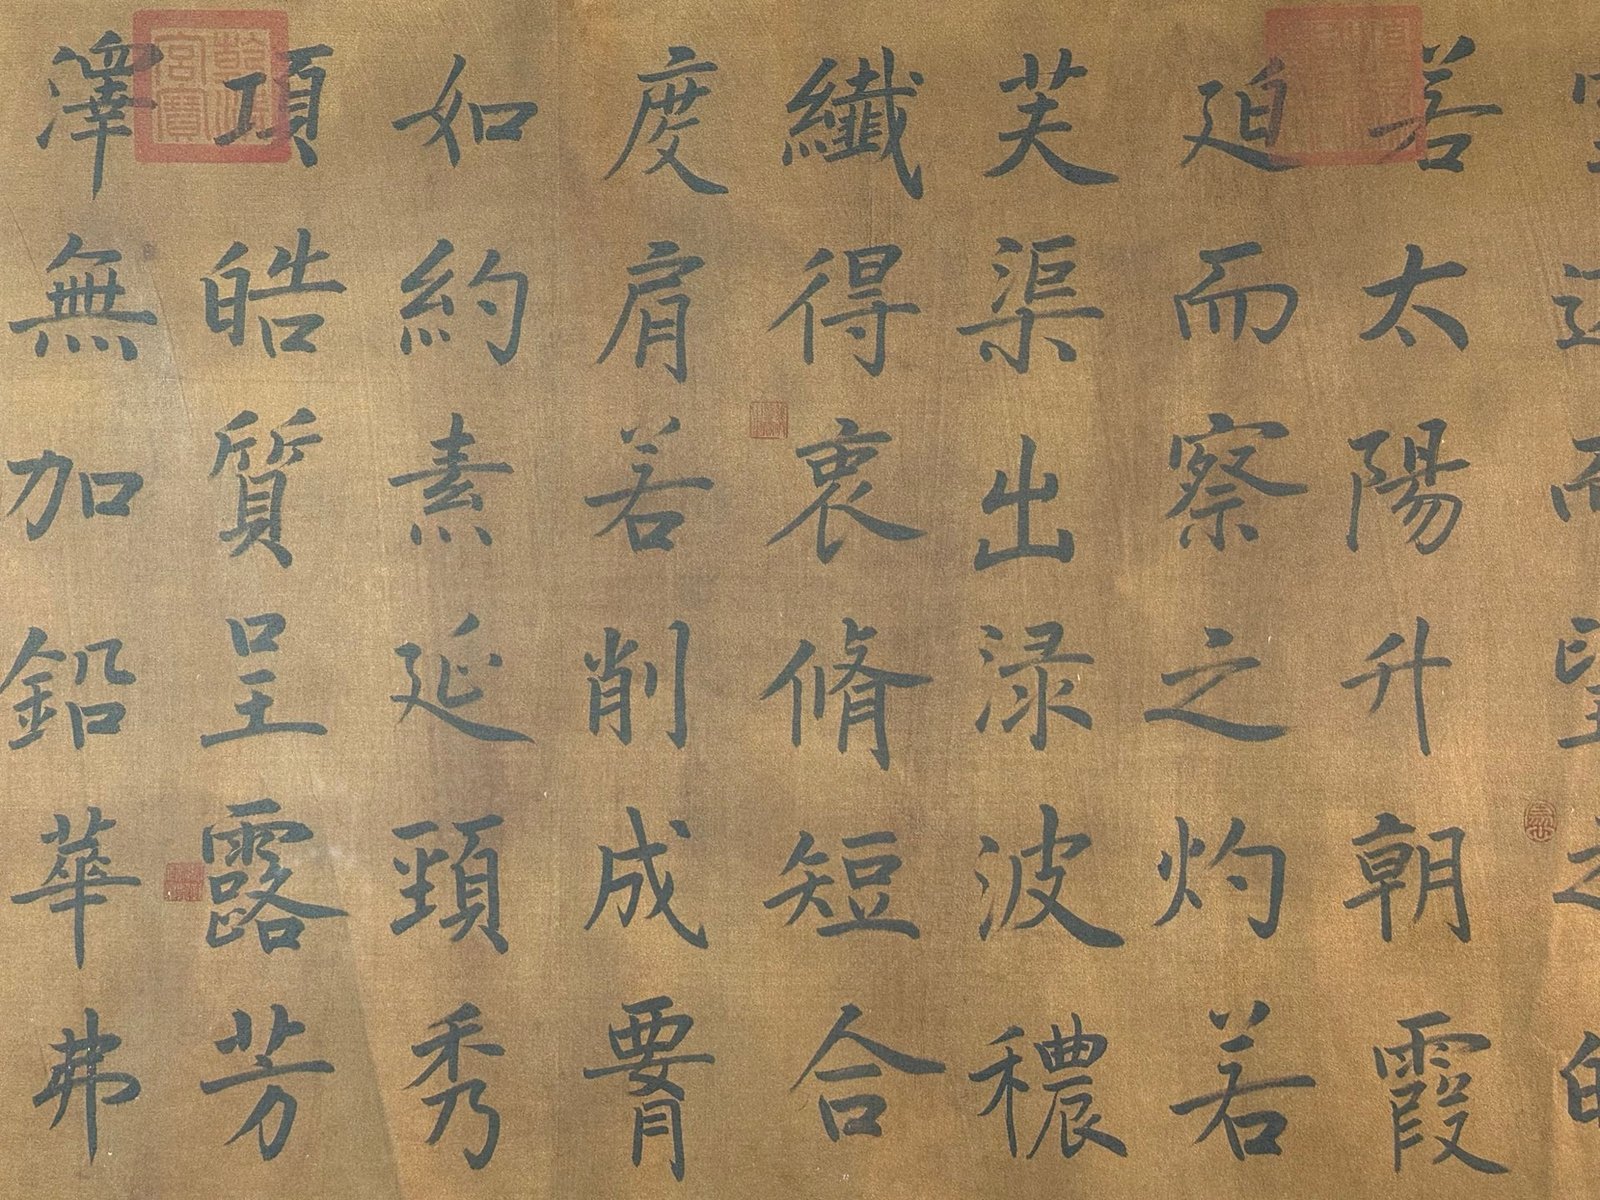 若太陽升朝霞
迫而察之灼若
芙渠出渌波穠
纖得衷脩短合
度肩若削成腰
如約素延頸秀
項皓質呈露芳
澤無加鉛華弗